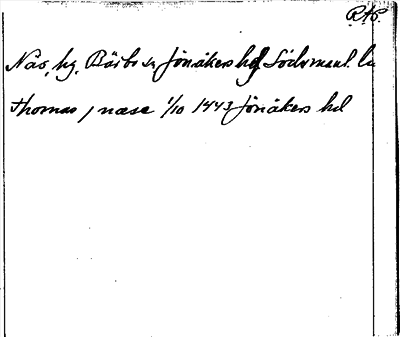 RAP.
Näs, hg. Bärbo sn Jönåkers hd Södermanl. ln
Thomas j næse 1/10 1443 Jönåkers hd